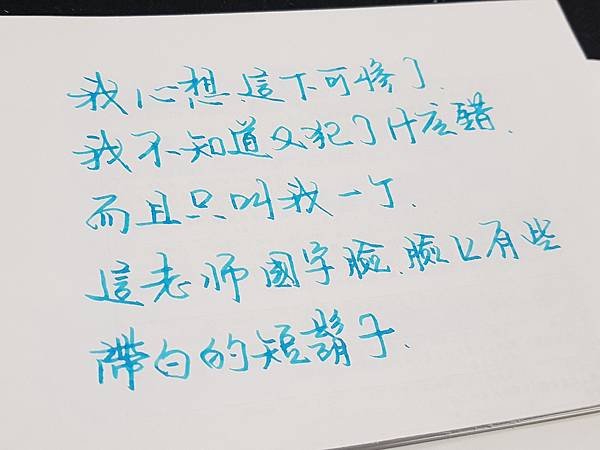 我心想,這下可慘了.
我不知道又犯了什広錯.
而且只叫我一丁.
這老师國字臉.臉上有些
帶白的短鬍子.